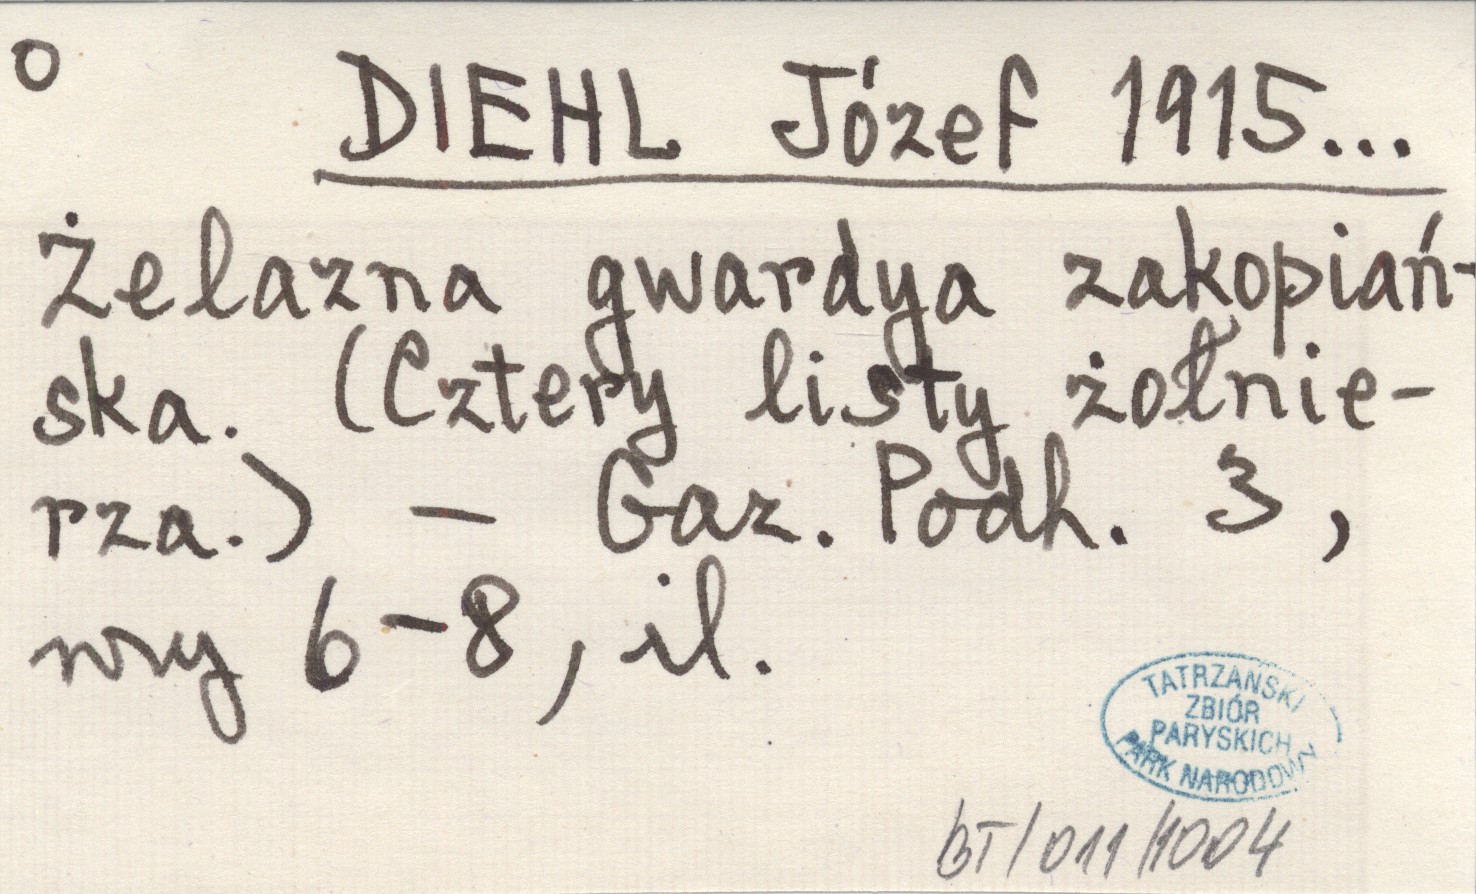 o
DIEHL Józef 1915...
Żelazna gwardya zakopiań-
ska. (Cztery listy żołnie-
rza.) – Gaz. Podh. 3,
nry 6–8, il.
TATRZAŃSKI
ZBIÓR
PARYSKICH
PARK NARODOWY
BT/011/1004